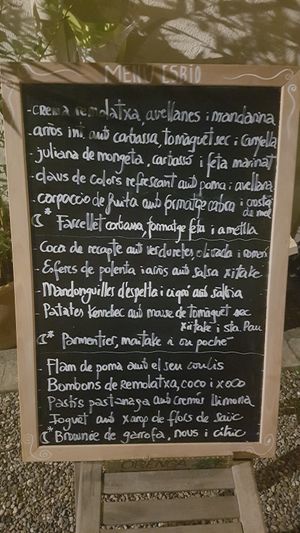 MENÚ ESBIÓ
- crema remolatxa, avellanes i mandarina
- arròs int. amb carbassa, tomàquet sec i
- juliana de mongeta, carbassó i feta marinat
- daus de colors refrescant amb poma i avellana
- carpaccio de fruita amb formatge cabra i
de mel
* Farcellet carbassa, formatge feta i ametlla
- Coca de recapte amb verduretes, olivada i romaní
- Esferes de polenta i arròs amb salsa xiitake
- Mandonguilles d'espelta i cigró amb salvia
- Patates Kennebec amb mousse de tomàquet sec
xiitake i sta. Pau
* Parmentier, maitake i ou poché
- Flam de poma amb el seu coulis
- Bombons de Remolatxa, coco i xoco
- Pastís pastanaga amb cremós llimona
- Iogurt amb xarop de flors de saüc
* Brownie de garrofa, nous i cítric